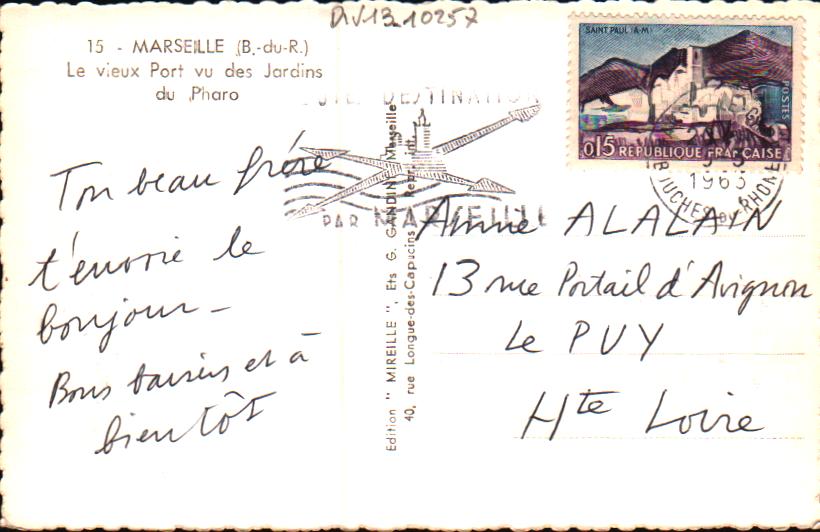 DIV13-10257
15 - MARSEILLE (B.-du-R.)
Le vieux Port vu des Jardins
du Pharo
Ton beau frère
t'envoie le
bonjour -
Bons baisers et à
bientôt
DESTINATION
PAR MARSEILLE
Edition " MIREILLE ", Ets G. GANDINI, Marseille
40, rue Longue-des-Capucins
SAINT PAUL (A-M)
POSTES
0,15 REPUBLIQUE FRANCAISE
1963
BOUCHES DU RHONE
Anne ALALAIN
13 rue Portail d'Avignon
Le PUY
Hte Loire